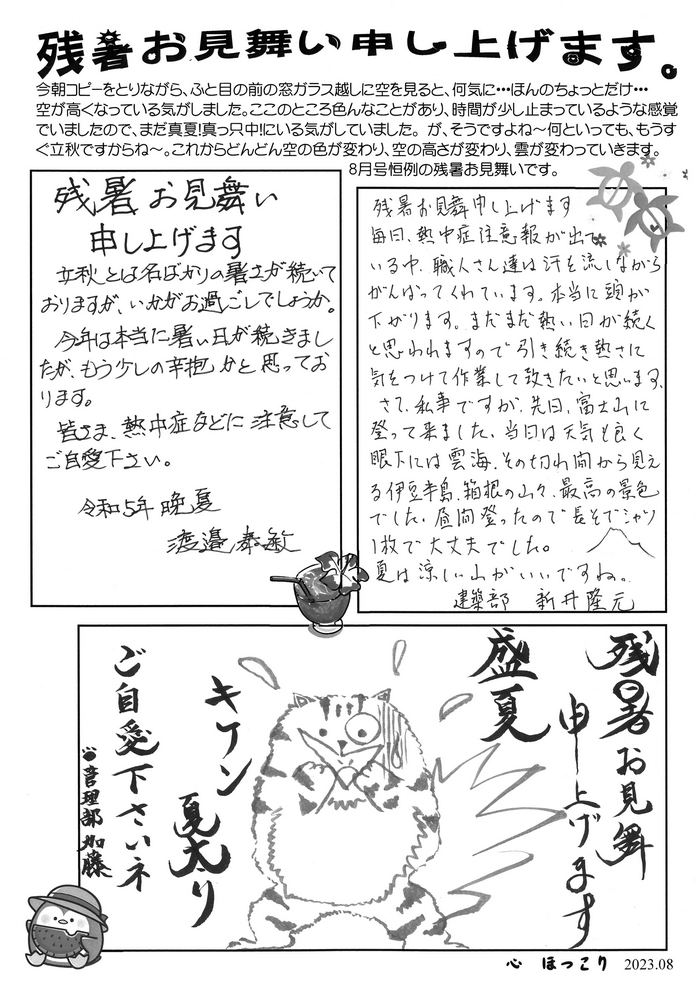 残暑お見舞い申し上げます。
今朝コピーをとりながら、ふと目の前の窓ガラス越しに空を見ると、何気に…ほんのちょっとだけ…
空が高くなっている気がしました。ここのところ色んなことがあり、時間が少し止まっているような感覚
でいましたので、まだ真夏!真っ只中!にいる気がしていました。が、そうですよね～何といっても、もうす
ぐ立秋ですからね～。これからどんどん空の色が変わり、空の高さが変わり、雲が変わっていきます。
8月号恒例の残暑お見舞いです。
残暑お見舞い
申し上げます
立秋とは名ばかりの暑さが続いて
おりますが、いかがお過ごしでしょうか。
今年は本当に暑い日が続きまし
たが、もう少しの辛抱かと思ってお
ります。
皆さま、熱中症などに注意して
ご自愛下さい。
令和5年晩夏
渡邉泰敏
残暑お見舞申し上げます
毎日、熱中症注意報が出て
いる中、職人さん達は汗を流しながら
がんばってくれています。本当に頭が
下がります。まだまだ熱い日が続く
と思われますので引き続き熱さに
気をつけて作業して致きたいと思います。
さて、私事ですが、先日、富士山に
登って来ました。当日は天気も良く
眼下には雲海、その切れ間から見え
る伊豆半島、箱根の山々、最高の景色
でした。昼間登ったので長そでシャツ
1枚で大丈夫でした。
夏は涼しい山がいいですね。
建築部 新井隆元
残暑お見舞
申し上げます
盛夏
キケン
夏太り
ご自愛下さいネ
管理部加藤
心 ほっこり 2023.08